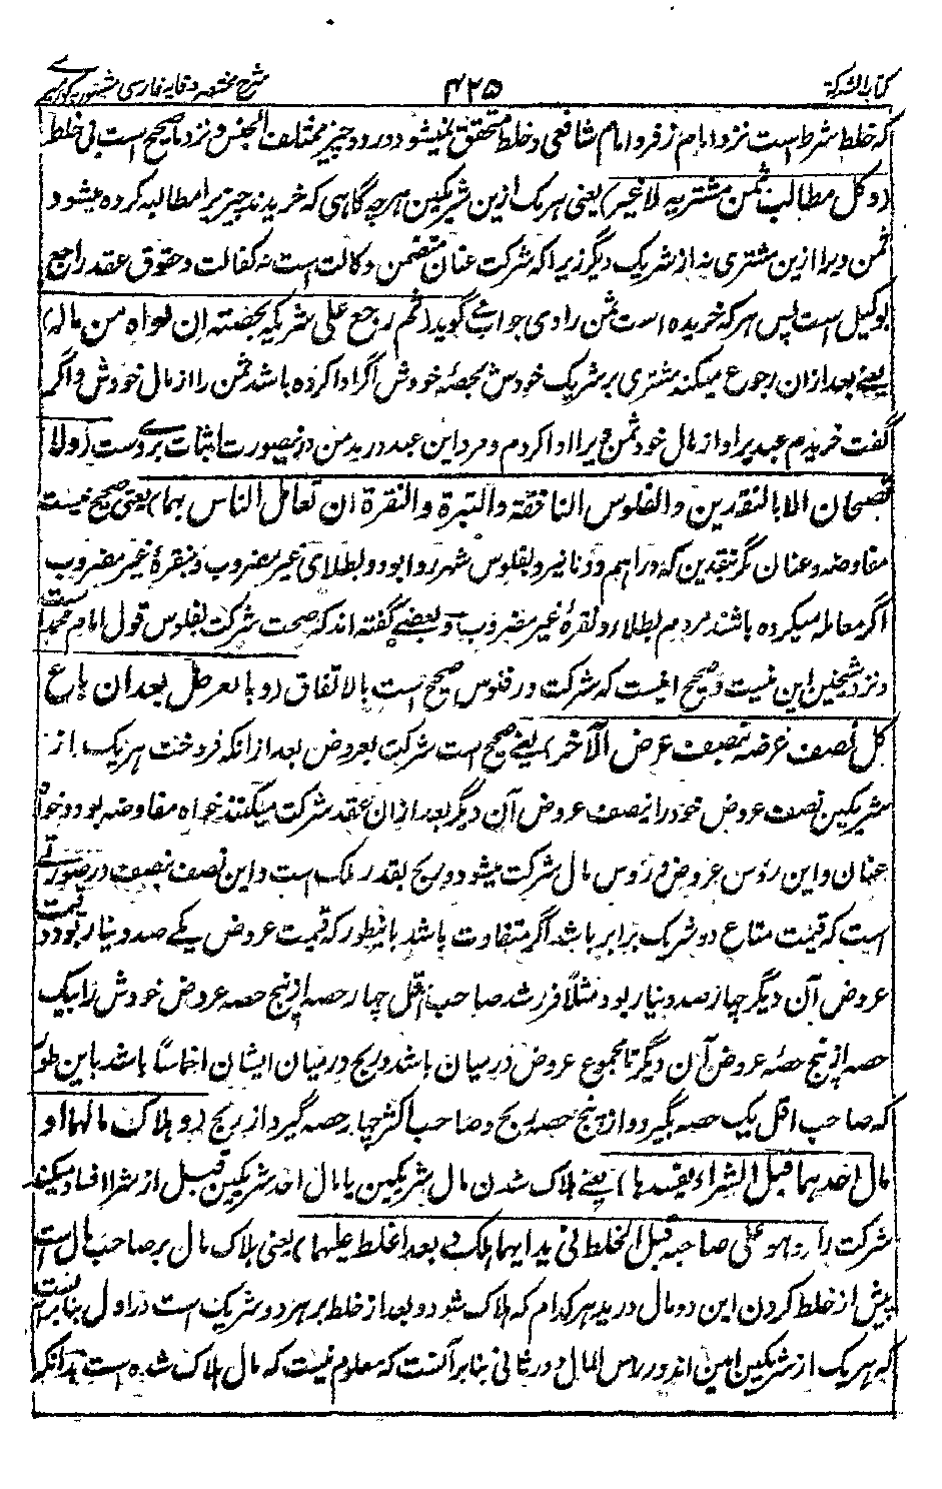 کتاب الشرکة ۴۲۵ شرح مختصر وقایه فارسی مشهور به
که خلط شرط است نزد امام زفر و امام شافعی و خلط متحقق نمیشود در دو چیز مختلف الجنس و نزد ما صحیح است بی خلط
(و کل مطالب بثمن مشتریه لا غیر) یعنی هر یک ازین شریکین هر چه گاهی که خریدند چیزیرا مطالبه کرده میشود
ثمن ویرا ازین مشتری نه از شریک دیگر زیرا که شرکت عنان متضمن وکالت است نه کفالت و حقوق عقد راجع
بوکیل است پس هر که خریده است ثمن را وی جواب گوید (ثم رجع علی شریکه بحصته ان ادواه من ماله)
یعنے بعد ازان رجوع میکند مشتری بر شریک خودش بحصهٔ خودش اگر ادا کرده باشد ثمن را از مال خودش و اگر
گفت خریدم عبدیرا و از مال خود ثمن ویرا ادا کردم و مرد این عبد در ید من درینصورت اثبات بروست (ولا
تصحان الا بالنقدین والفلوس النافقة والتبرة والنقرة ان تعامل الناس بهما) یعنی صحیح نیست
مفاوضه و عنان مگر بنقدین که دراهم و دنانیر و بفلوس شهر روا بود و بطلای غیر مضروب و بنقرهٔ غیر مضروب
اگر معامله میکرده باشند مردم بطلا و نقرهٔ غیر مضروب و بعضے گفته اند که صحت شرکت بفلوس قول امام محمد است
و نزد شیخین این نیست و صحیح اینست که شرکت در فلوس صحیح است بالاتفاق (و بالعرض بعد ان باع
کل نصف عرضه بنصف عرض الآخر) یعنے صحیح است شرکت بعروض بعد ازانکه فروخت هر یک از
شریکین نصف عروض خود را بنصف عروض آن دیگر بعد ازان عقد شرکت میکنند خواه مفاوضه بود و خواه
عنان و این رؤس عروض رؤس مال شرکت میشود و ربح بقدر ملک است و این نصف بنصف در صورتے
است که قیمت متاع دو شریک برابر باشد اگر متفاوت باشد باینطور که قیمت عروض یکے صد دینار بود و قیمت
عروض آن دیگر چهار صد دینار بود مثلاً فروشد صاحب اقل چهار حصه از پنج حصه عروض خودش را بیک
حصه از پنج حصهٔ عروض آن دیگر تا مجموع عروض درمیان باشد و ربح درمیان ایشان اخماساً باشد باین طور
که صاحب اقل یک حصه بگیرد و از پنج حصه ربح و صاحب اکثر چهار حصه گیرد از ربح (و هلاک مالهما او
مال احدهما قبل الشراء یفسدها) یعنے هلاک شدن مال شریکین یا مال احد شریکین قبل از شرا افساد میکند
شرکت را (و هو علی صاحبه قبل الخلط فی یدایهما هلک و بعد الخلط علیهما) یعنی هلاک مال بر صاحب مال است
پیش از خلط کردن این دو مال در ید هر کدام که هلاک شود و بعد از خلط بر هر دو شریک است در اول بنا بر
که هر یک از شریکین امین اند در راس المال و در ثانی بنا بر آنست که معلوم نیست که مال هلاک شده است